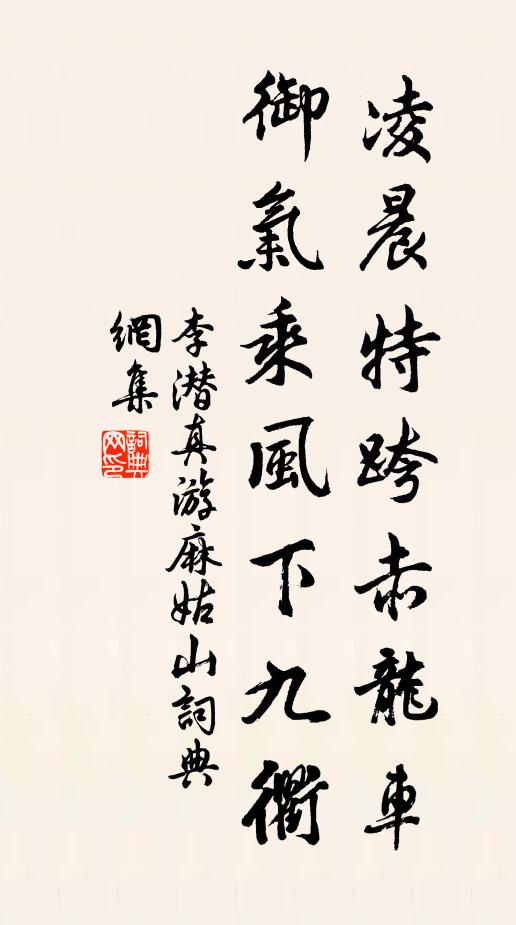 凌晨特跨赤龍車
御氣乘風下九衢
李潜真游麻姑山詞典
網集
詞典網印